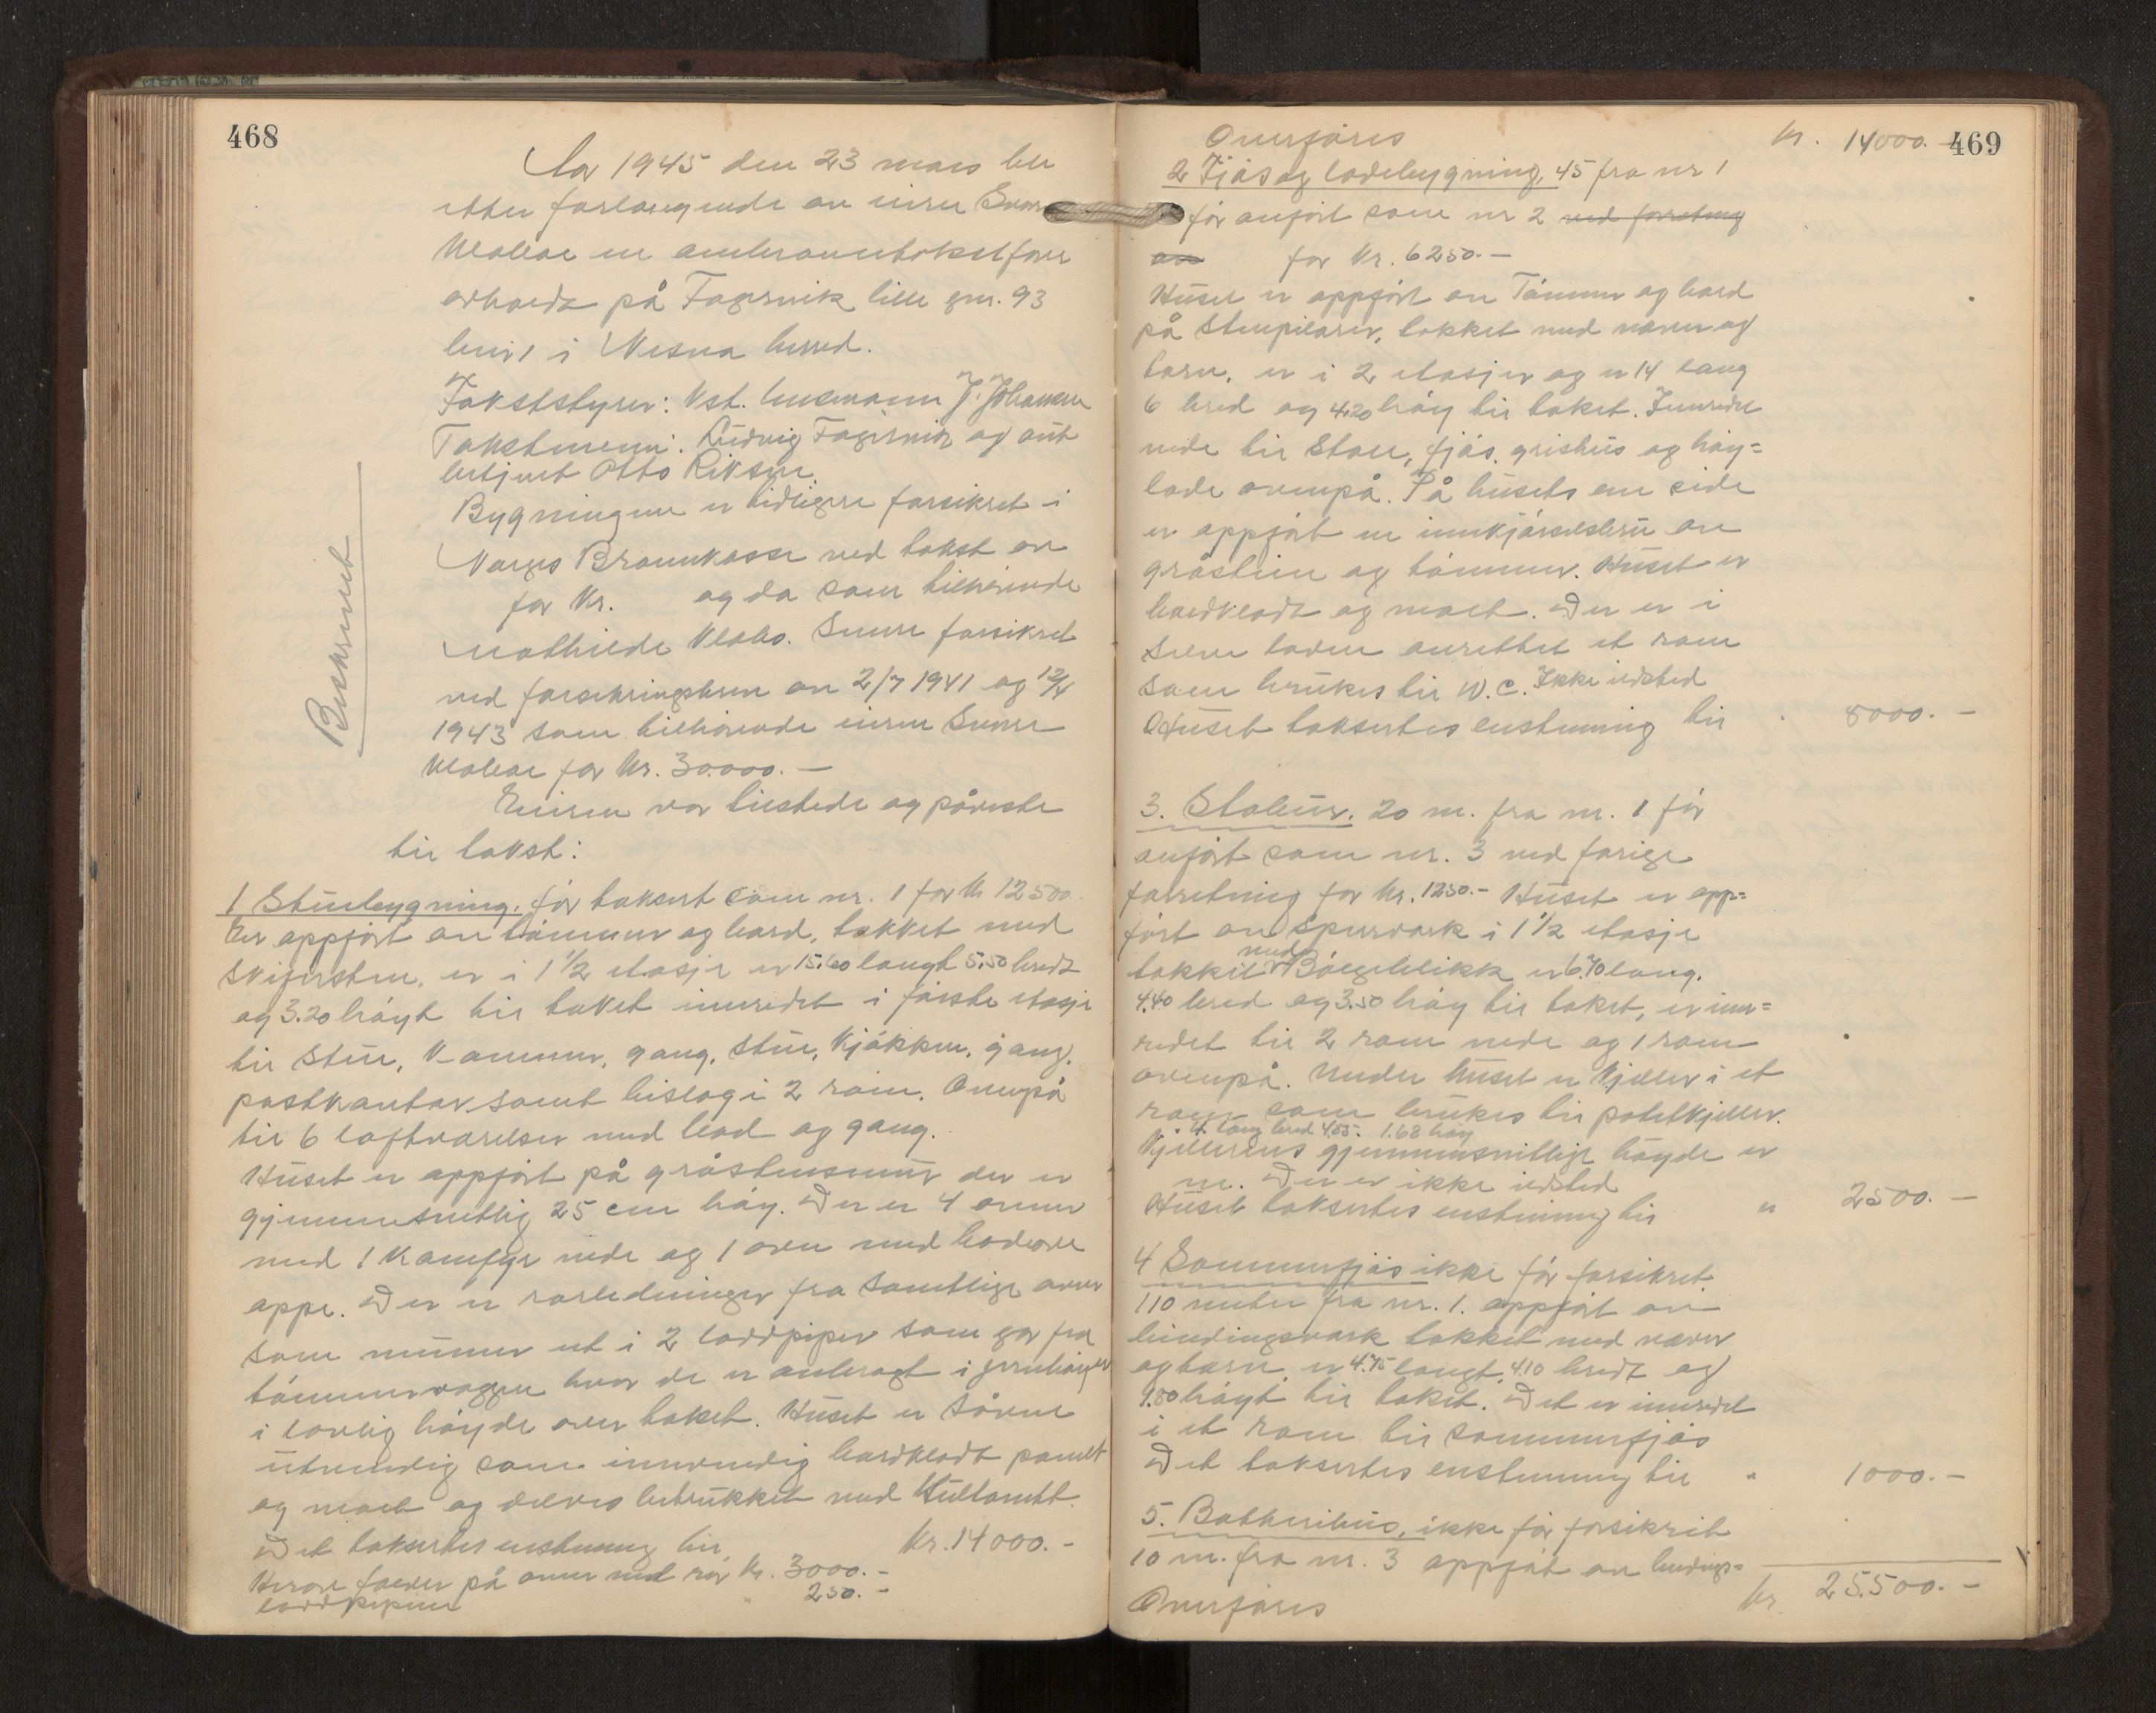 468
År 1945 den 23 mars ble
etter forlangende av eieren Einar
Klabo en ombrannstakst fore
avholdt på Fagervik lille gnr. 93
bnr 1 i Nesna herred.
Takststyrer: Kst. lensmann J. Johansen
Takstmenn: Ludvig Fagervik og aut
betjent Otto Riksen
Bygningene er tidligere forsikret i
Norges Brannkasse ved takst av
for Kr. og da som tilhørende
Mathilde Klabo. Senere forsikret
ved forsikringsbrev av 2/7 1941 og 12/4
1943 som tilhørende eieren Einar
Klabo for Kr. 30.000.-
Eieren var tilstede og påviste
til takst:
Beskrivelse
1 Stuebygning. før taksert som nr. 1 for Kr 12500.
Er oppført av tømmer og bord, takket med
skifersten, er i 1 1/2 etasje er 15.60 langt 5.50 bredt
og 3.20 høyt til taket innredet i første etasje
til stue, kammer, gang, stue, kjøkken, gang,
postkontor samt bislag i 2 rom. Ovenpå
til 6 loftværelser med bod og gang.
Huset er oppført på gråstensmur der er
gjennemsnitlig 25 cm høy. Der er 4 ovner
med 1 komfyr nede og 1 ovn med badeovn
oppe. Der er rørledninger fra samtlige ovner
som munner ut i 2 loddpiper som går fra
tømmerveggen hvor de er anbragt i
i lovlig høyde over taket. Huset er såvel
utvendig som innvendig bordkledt panelt
og malt og delvis betrukket med Hultonitt.
Det taksertes enstemmig til Kr. 14000.-
Herav faller på ovner med rør Kr. 3000.-
loddpipene " 250.-
469
Overføres Kr. 14000.-
2 Fjøs og ladebygning, 45 fra nr 1
før anført som nr 2 ved forretning
av for Kr. 6250.-
Huset er oppført av Tømmer og bord
på stenpilarer, takket med never og
torv, er i 2 etasjer og er 14 lang
6 bred og 4.20 høy til taket. Innredet
nede til stall, fjøs, grishus og høy=
lade ovenpå. På husets ene side
er oppført en innkjørselsbru av
gråsten og tømmer. Huset er
bordkledt og malt. Der er i
selve laden innrettet et rom
som brukes til W.C. Ikke ildsted
Huset taksertes enstemmig til " 8000.-
3. Stabur. 20 m. fra nr. 1 før
anført som nr. 3 ved forrige
forretning for Kr. 1250.- Huset er opp=
ført av spervark i 1 1/2 etasje
takket med Bølgeblikk er 6.70 lang.
4.40 bred og 3.50 høy til taket, er inn=
redet til 2 rom nede og 1 rom
ovenpå. Under huset er kjeller i et
rom som brukes til potetkjeller.
4. lang bred 4.55. 1.68 høy
Kjellerens gjennemsnitlige høyde er
m. Der er ikke ildsted
Huset taksertes enstemmig til " 2500.-
4 Sommerfjøs ikke før forsikret
110 meter fra nr. 1. oppført av
bindingsvark takket med never
og torv, er 4.75 langt, 4.10 bredt og
1.80 høyt til taket. Det er innredet
i et rom til sommerfjøs
Det taksertes enstemmig til " 1000.-
5. Batterihus, ikke før forsikret
10 m. fra nr. 3 oppført av bindings=
Overføres Kr. 25.500.-